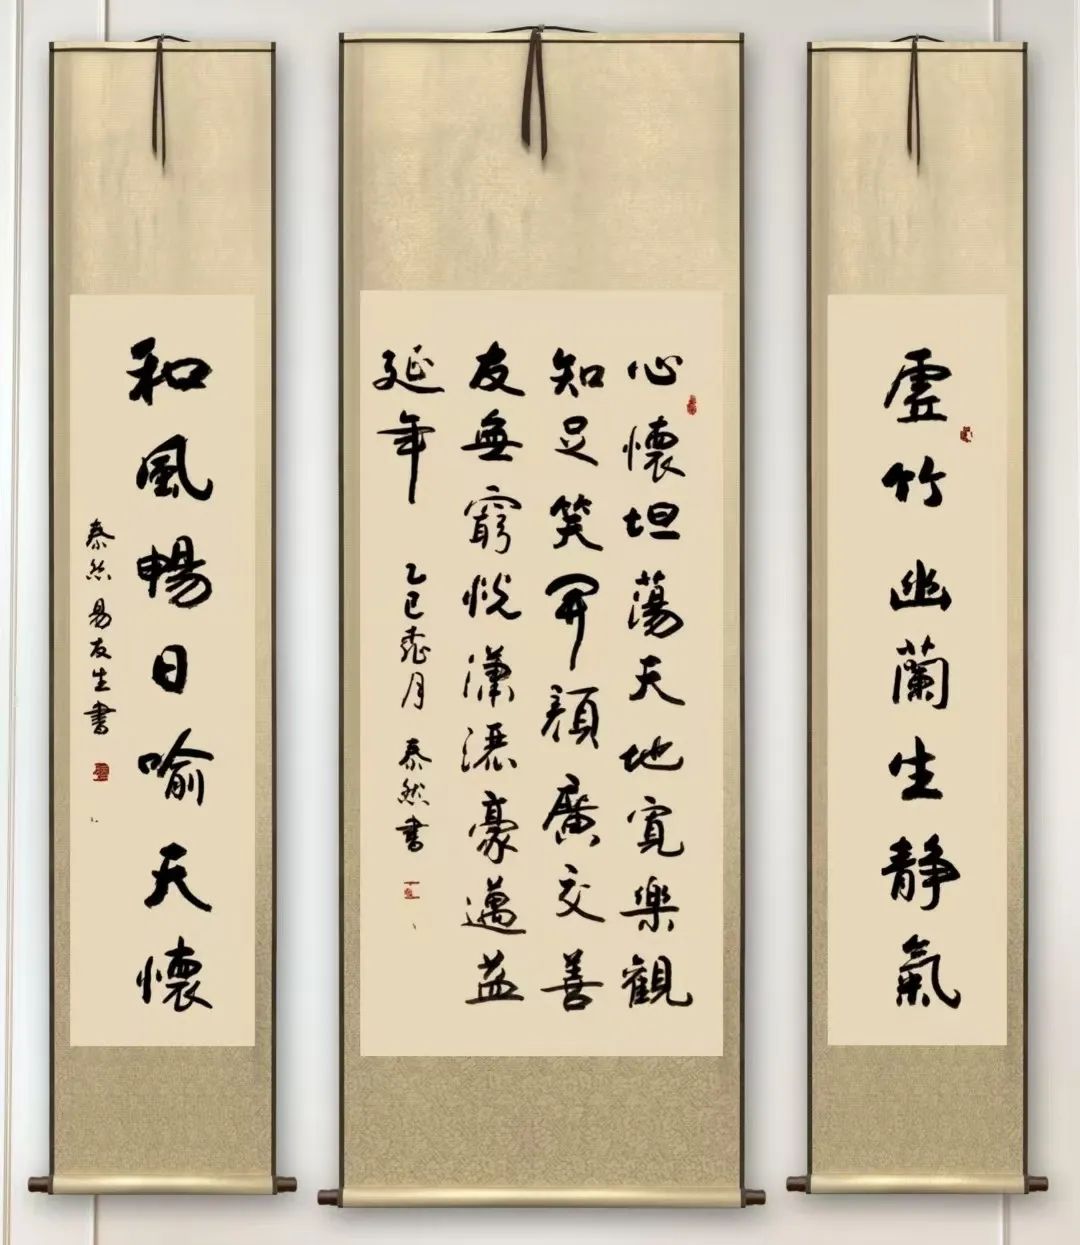 虛竹幽蘭生靜氣
心懷坦蕩天地寬樂觀
知足笑開顏廣交善
友無窮悅瀟灑豪邁益
延年 乙巳 月 泰然書
和風暢日喻天懷
泰然 易友生書